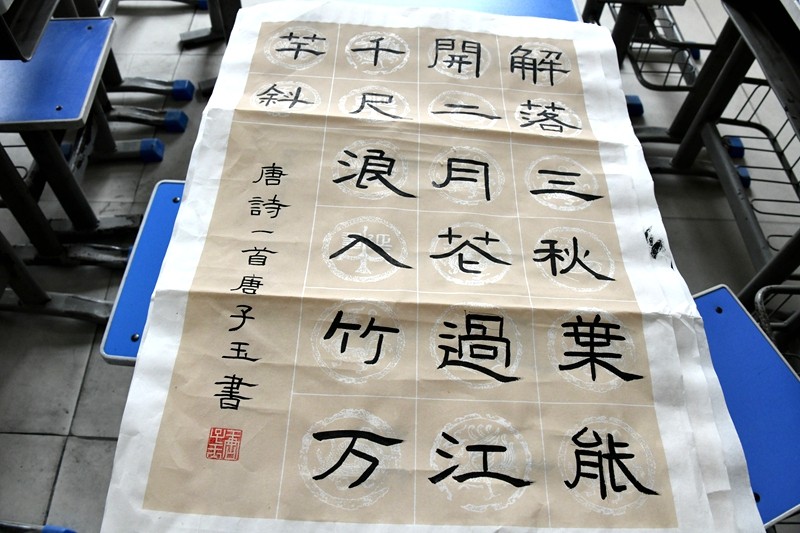 解落三秋葉能
開二月花過江
千尺浪入竹万
竿斜
唐詩一首唐子玉書
唐子玉